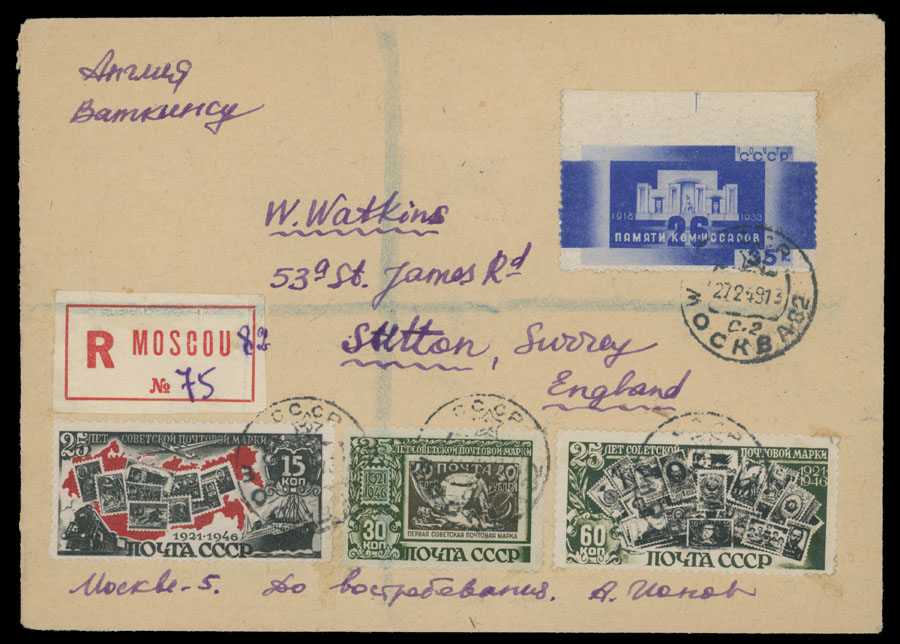 Англия
Ваткинсу
ПОЧТА
СССР
1918 1933
26
ПАМЯТИ КОМИССАРОВ
35
W. Watkins
53ª St. James Rd
Sutton, Surrey
England
СССР
27 2 49 13
С-2
МОСКВА 82
R MOSCOU 82
№ 75
СССР
СССР
25 ЛЕТ СОВЕТСКОЙ ПОЧТОВОЙ МАРКИ
15 КОП
1921-1946
ПОЧТА СССР
25 ЛЕТ СОВЕТСКОЙ ПОЧТОВОЙ МАРКИ
1921 1946
ПОЧТА
РУБЛЕЙ
ПЕРВАЯ СОВЕТСКАЯ ПОЧТОВАЯ МАРКА
30 КОП
ПОЧТА СССР
25 ЛЕТ СОВЕТСКОЙ ПОЧТОВОЙ МАРКИ
1921 1946
60 КОП
ПОЧТА СССР
Москве-5. До востребования. А. Ионов